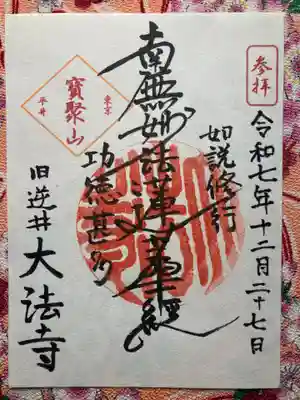 参拝
令和七年十二月二十七日
如説修行
南無妙法蓮華經
功徳甚多
東京
寶聚山
平井
旧逆井
大法寺